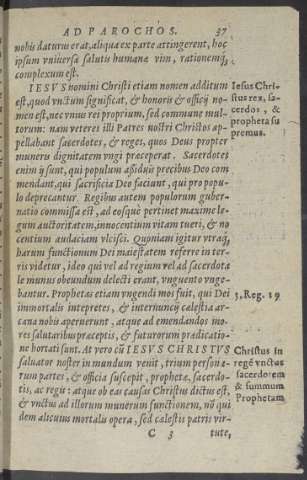 AD PAROCHOS. 37
nobis daturus erat, aliqua ex parte attingerent, hoc
ipsum vniuersa salutis humanæ vim, rationemq;
complexum est.
IESVS nomini Christi etiam nomen additum
est, quod vnctum significat, & honoris & officij no-
men est, nec vnius rei proprium, sed commune mul-
torum: nam veteres illi Patres nostri Christos ap-
pellabant sacerdotes, & reges, quos Deus propter
muneris dignitatem vngi præceperat. Sacerdotes
enim ij sunt, qui populum assiduis precibus Deo com
mendant, qui sacrificia Deo faciunt, qui pro popu-
lo deprecantur. Regibus autem populorum guber-
natio commissa est, ad eosque pertinet maxime le-
gum auctoritatem, innocentium vitam tueri, & no
centium audaciam vlcisci. Quoniam igitur vtraq;
harum functionum Dei maiestatem referre in ter-
ris videtur, ideo qui vel ad regium vel ad sacerdota
le munus obeundum delecti erant, vnguento vnge-
bantur. Prophetas etiam vngendi mos fuit, qui Dei
immortalis intepretes, & internuncij cælestia ar-
cana nobis aperuerunt, atque ad emendandos mo-
res salutaribus præceptis, & futurorum prædicatio-
ne hortati sunt. At vero cũ IESVS CHRISTVS
saluator noster in mundum venit, trium persona-
rum partes, & officia suscepit, prophetæ, sacerdo-
tis, ac regis: atque ob eas causas Christus dictus est,
& vnctus ad illorum munerum functionem, nõ qui
dem alicuius mortalis opera, sed cælestis patris vir-
C 3 tute,
Iesus Chri-
stus rex, sa-
cerdos, &
propheta su
premus.
3. Reg. 19
Christus in
regē vnctus
sacerdotem
& summum
Prophetam